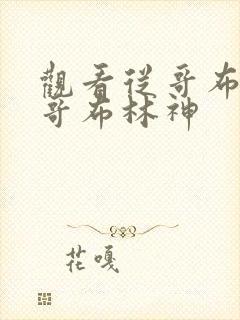 觀看從哥布
哥布林神
花嘎